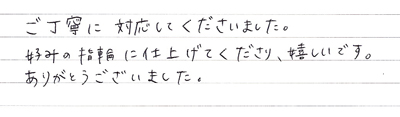 ご丁寧に対応してくださいました。
好みの指輪に仕上げてくださり、嬉しいです。
ありがとうございました。